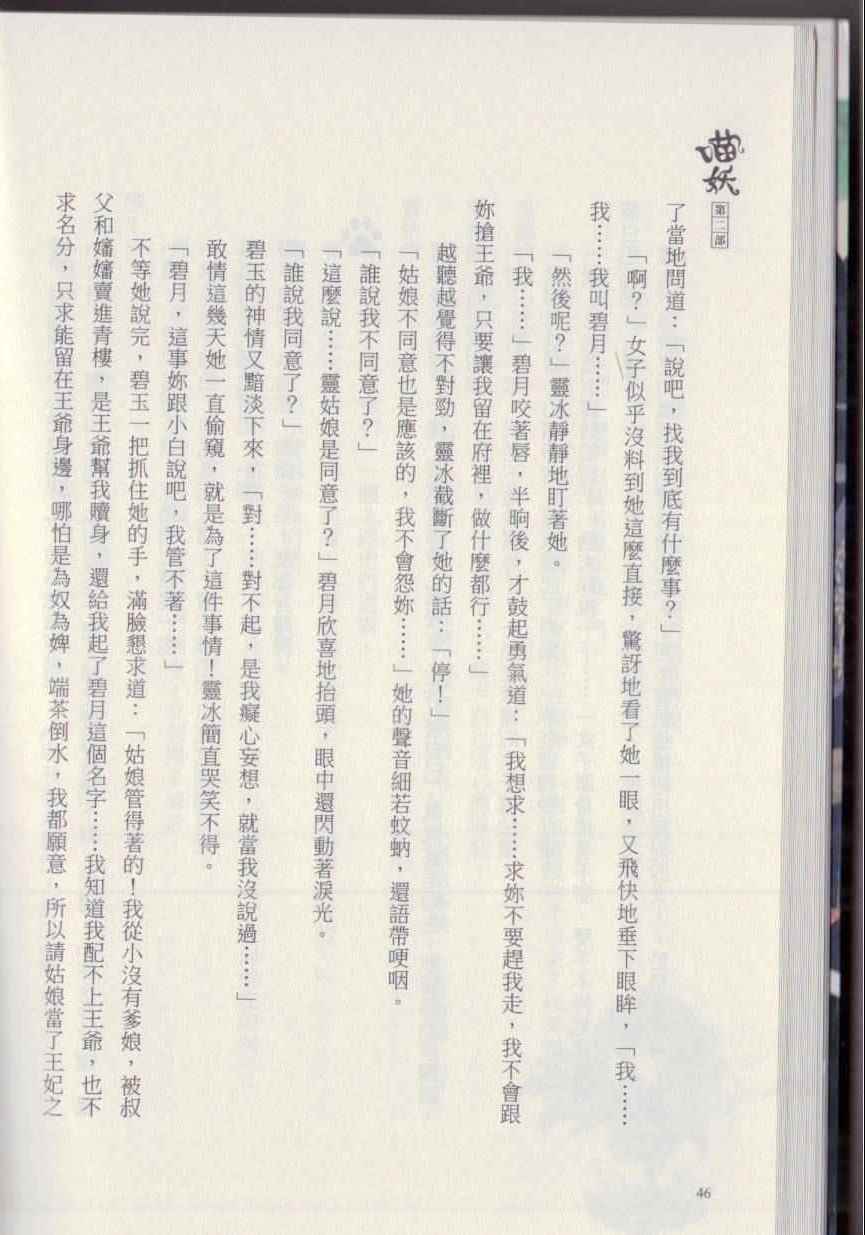 喵妖
第二部
了當地問道：「說吧，找我到底有什麼事？」
「啊？」女子似乎沒料到她這麼直接，驚訝地看了她一眼，又飛快地垂下眼眸，「我……
我……我叫碧月……」
「然後呢？」靈冰靜靜地盯著她。
「我……」碧月咬著唇，半晌後，才鼓起勇氣道：「我想求……求妳不要趕我走，我不會跟
妳搶王爺，只要讓我留在府裡，做什麼都行……」
越聽越覺得不對勁，靈冰截斷了她的話：「停！」
「姑娘不同意也是應該的，我不會怨妳……」她的聲音細若蚊蚋，還語帶哽咽。
「誰說我不同意了？」
「這麼說……靈姑娘是同意了？」碧月欣喜地抬頭，眼中還閃動著淚光。
「誰說我同意了？」
碧玉的神情又黯淡下來，「對……對不起，是我癡心妄想，就當我沒說過……」
敢情這幾天她一直偷窺，就是為了這件事情！靈冰簡直哭笑不得。
「碧月，這事妳跟小白說吧，我管不著……」
不等她說完，碧玉一把抓住她的手，滿臉懇求道：「姑娘管得著的！我從小沒有爹娘，被叔
父和嬸嬸賣進青樓，是王爺幫我贖身，還給我起了碧月這個名字……我知道我配不上王爺，也不
求名分，只求能留在王爺身邊，哪怕是為奴為婢，端茶倒水，我都願意，所以請姑娘當了王妃之
46